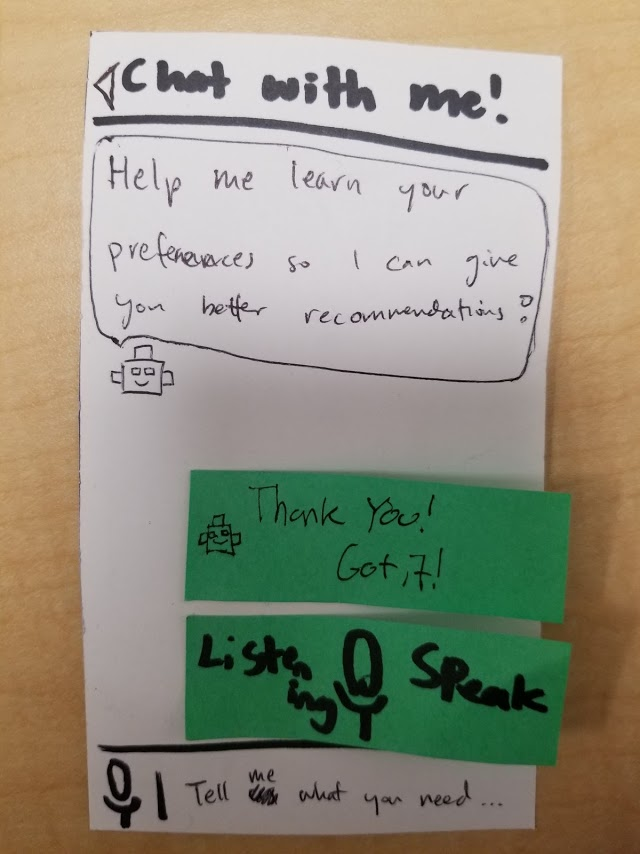 Chat with me!
Help me learn your
preferences so I can give
you better recommendations!
Thank You!
Got,
Listen
ing
Speak
Tell me what you need...